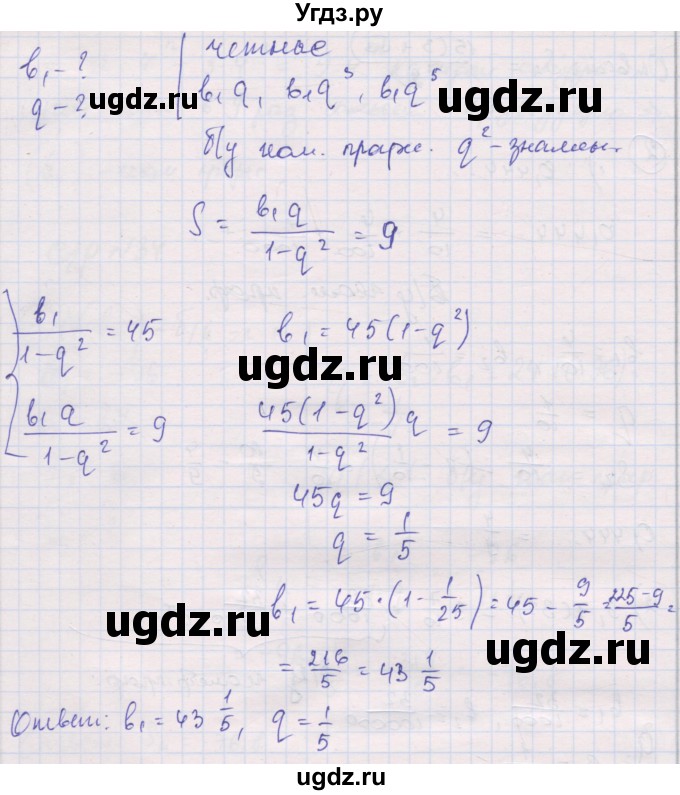 Угдз.ру
b₁ - ?
q - ?
четные
b₁q, b₁q³, b₁q⁵
б/у геом. прогр. q² - знамен.
S = b₁q / (1 - q²) = 9
b₁ / (1 - q²) = 45
b₁ = 45(1 - q²)
b₁q / (1 - q²) = 9
45(1 - q²) / (1 - q²) q = 9
45q = 9
q = 1/5
b₁ = 45 · (1 - 1/25) = 45 - 9/5 = (225 - 9)/5 =
= 216/5 = 43 1/5
Ответ: b₁ = 43 1/5, q = 1/5
ugdz.ru
ugdz.ru
ugdz.ru
ugdz.ru
ugdz.ru
ugdz.ru
ugdz.ru
ugdz.ru
ugdz.ru